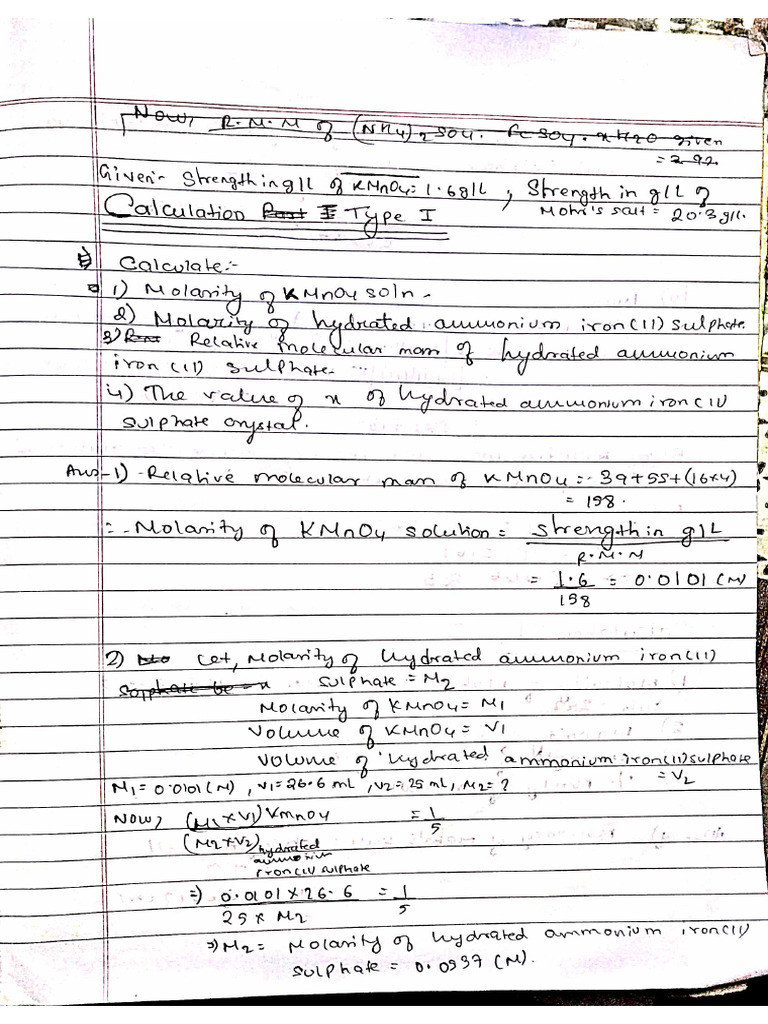 Now, R.M.M of (NH4)2SO4. FeSO4. xH2O given
= 392
Given:- Strength in g/L of KMnO4 = 1.6 g/L , Strength in g/L of
Mohr's salt = 20.3 g/L.
Calculation Part I Type I
Calculate:-
1) Molarity of KMnO4 soln -
2) Molarity of hydrated ammonium iron(II) sulphate.
3) Relative molecular mass of hydrated ammonium
iron (II) sulphate.
4) The value of x of hydrated ammonium iron(II)
sulphate crystal.
Ans -1) - Relative molecular mass of KMnO4 = 39+55+(16×4)
= 158.
∴ Molarity of KMnO4 solution = Strength in g/L
R.M.M
= 1.6 = 0.0101 (M)
158
2) No Let, Molarity of hydrated ammonium iron(II)
Sopphate be x sulphate = M2
Molarity of KMnO4 = M1
Volume of KMnO4 = V1
Volume of hydrated ammonium iron(II) sulphate
= V2
M1 = 0.0101 (M) , V1 = 26.6 mL , V2 = 25 mL, M2 = ?
Now, (M1 × V1) KMnO4 = 1
(M2 × V2) hydrated 5
ammonium
iron(II) sulphate
⇒ 0.0101 × 26.6 = 1
25 × M2 5
⇒ M2 = Molarity of hydrated ammonium iron(II)
sulphate = 0.0537 (M).